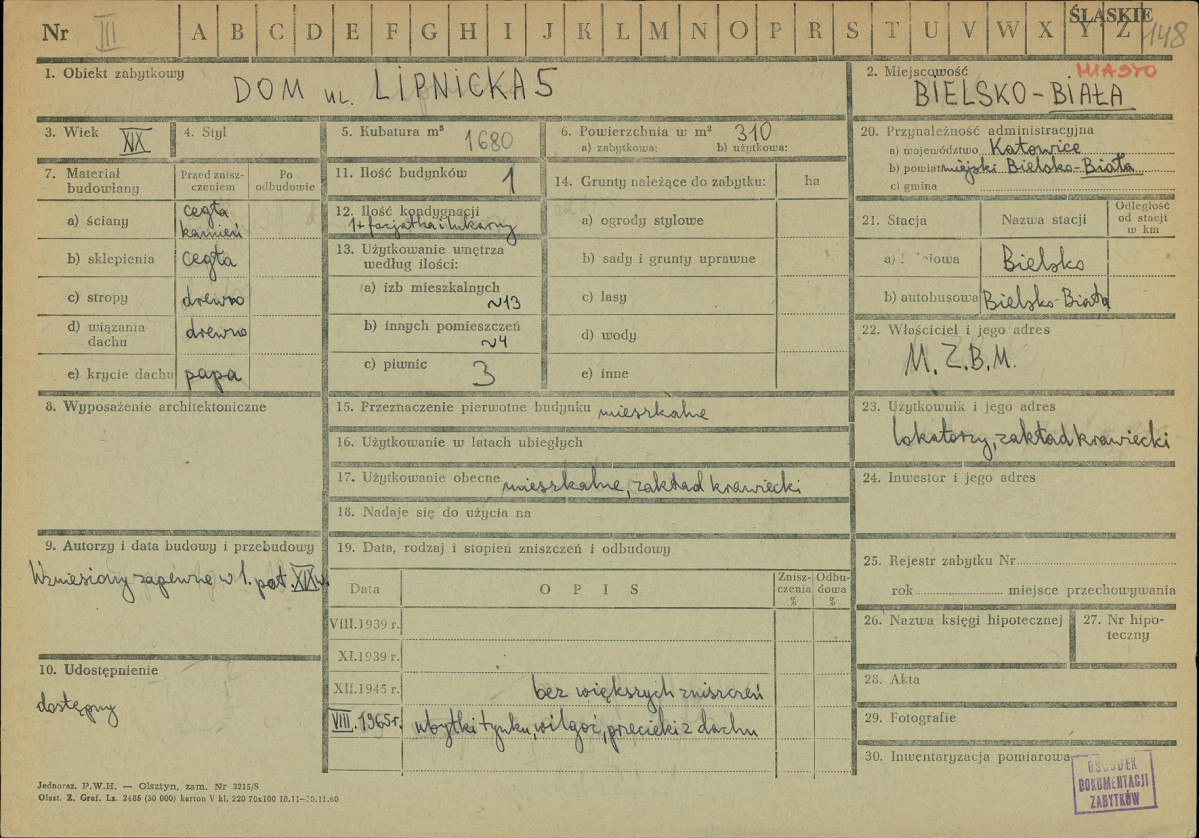 Nr III A B C D E F G H I J K L M N O P R S T U V W X Y Z ŚLĄSKIE 148
1. Obiekt zabytkowy DOM ul. LIPNICKA 5
2. Miejscowość MIASTO
BIELSKO-BIAŁA
3. Wiek XIX
4. Styl
5. Kubatura m³ 1680
6. Powierzchnia w m² 310
a) zabytkowa: b) użytkowa:
7. Materiał budowlany
Przed zniszczeniem
Po odbudowie
a) ściany cegła kamień
b) sklepienia cegła
c) stropy drewno
d) wiązania dachu drewno
e) krycie dachu papa
8. Wyposażenie architektoniczne
9. Autorzy i data budowy i przebudowy
Wzniesiony zapewne w 1. poł. XIX w.
10. Udostępnienie
dostępny
11. Ilość budynków 1
12. Ilość kondygnacji
1 + facjatka i lukarny
13. Użytkowanie wnętrza
według ilości:
a) izb mieszkalnych
~13
b) innych pomieszczeń
~4
c) piwnic 3
14. Grunty należące do zabytku: ha
a) ogrody stylowe
b) sady i grunty uprawne
c) lasy
d) wody
e) inne
15. Przeznaczenie pierwotne budynku mieszkalne
16. Użytkowanie w latach ubiegłych
17. Użytkowanie obecne mieszkalne, zakład krawiecki
18. Nadaje się do użycia na
19. Data, rodzaj i stopień zniszczeń i odbudowy
Data OPIS Zniszczenia % Odbudowa %
VIII.1939 r.
XI.1939 r.
XII.1945 r. bez większych zniszczeń
VIII.1965 r. ubytki tynku, wilgoć, przecieki z dachu
20. Przynależność administracyjna
a) województwo Katowice
b) powiat miejski Bielsko-Biała
c) gmina
21. Stacja Nazwa stacji Odległość od stacji w km
a) Bielsko
b) autobusowa Bielsko-Biała
22. Właściciel i jego adres
M.Z.B.M.
23. Użytkownik i jego adres
lokatorzy, zakład krawiecki
24. Inwestor i jego adres
25. Rejestr zabytku Nr
rok miejsce przechowywania
26. Nazwa księgi hipotecznej
27. Nr hipoteczny
28. Akta
29. Fotografie
30. Inwentaryzacja pomiarowa
OŚRODEK
DOKUMENTACJI
ZABYTKÓW
Jednoraz. P.W.H. — Olsztyn, zam. Nr 3215/S
Olszt. Z. Graf. Lz. 2485 (30 000) karton V kl. 220 70x100 10.11—30.11.60